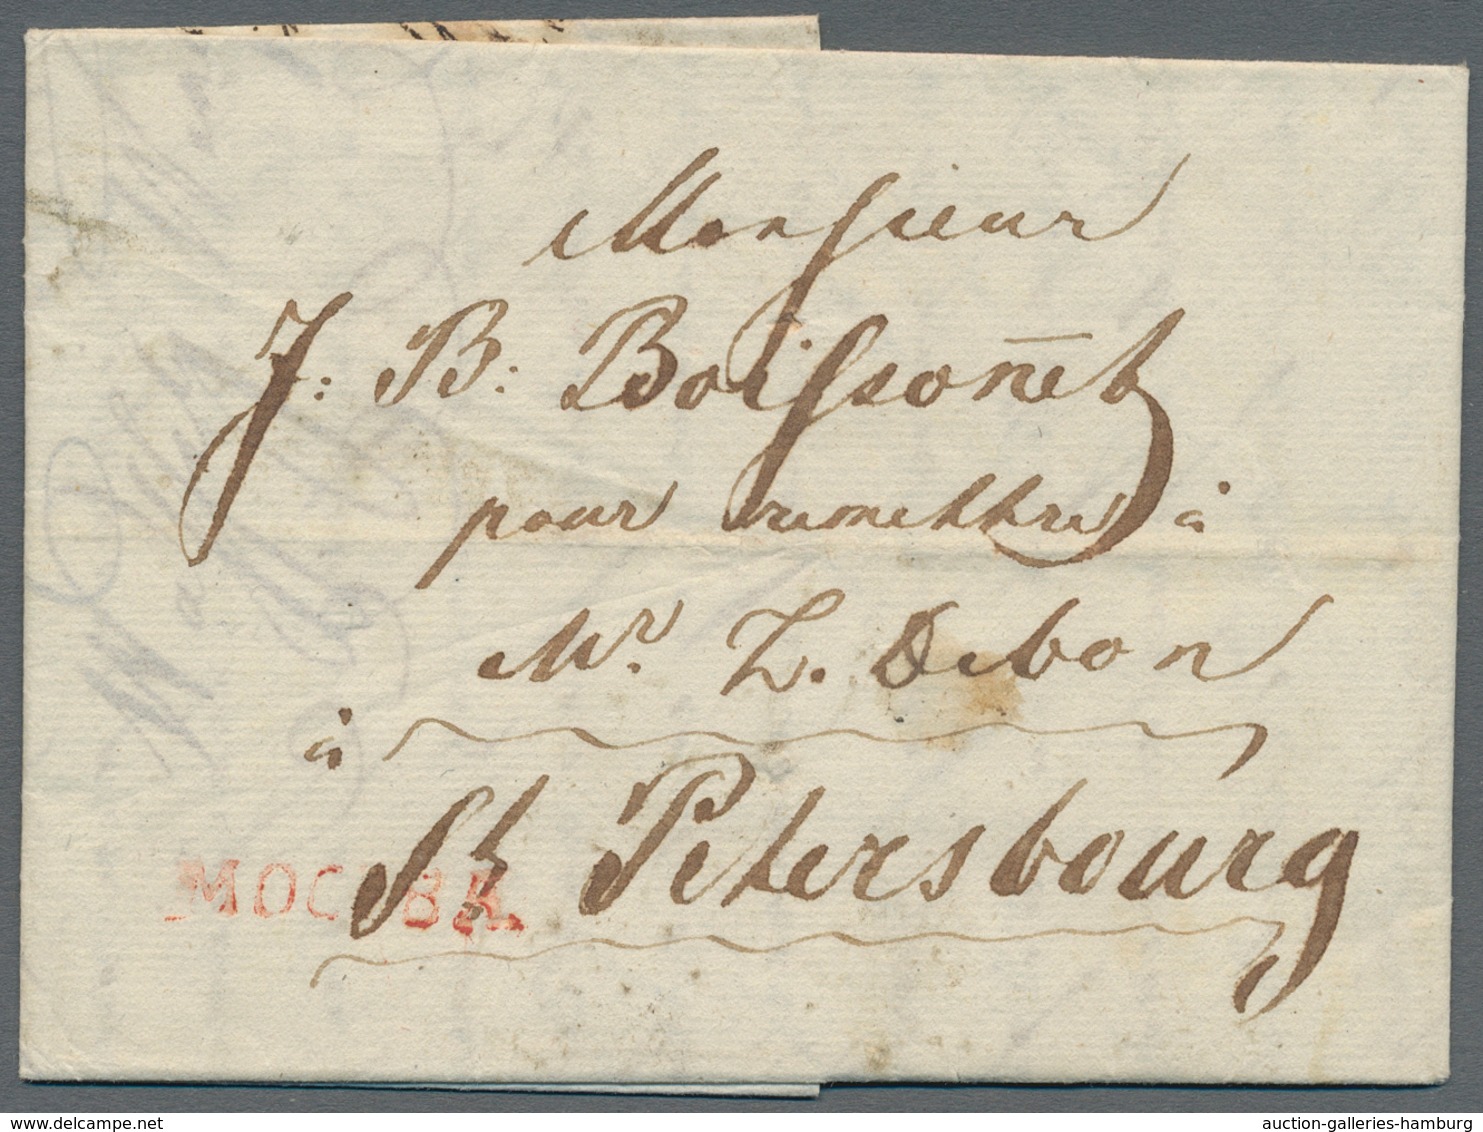 Monsieur
J: B: Boissonet
pour remettre à
Mr. L. Debon
à
St Petersbourg
МОСКВА
delcampe.net
auction-galleries-hamburg